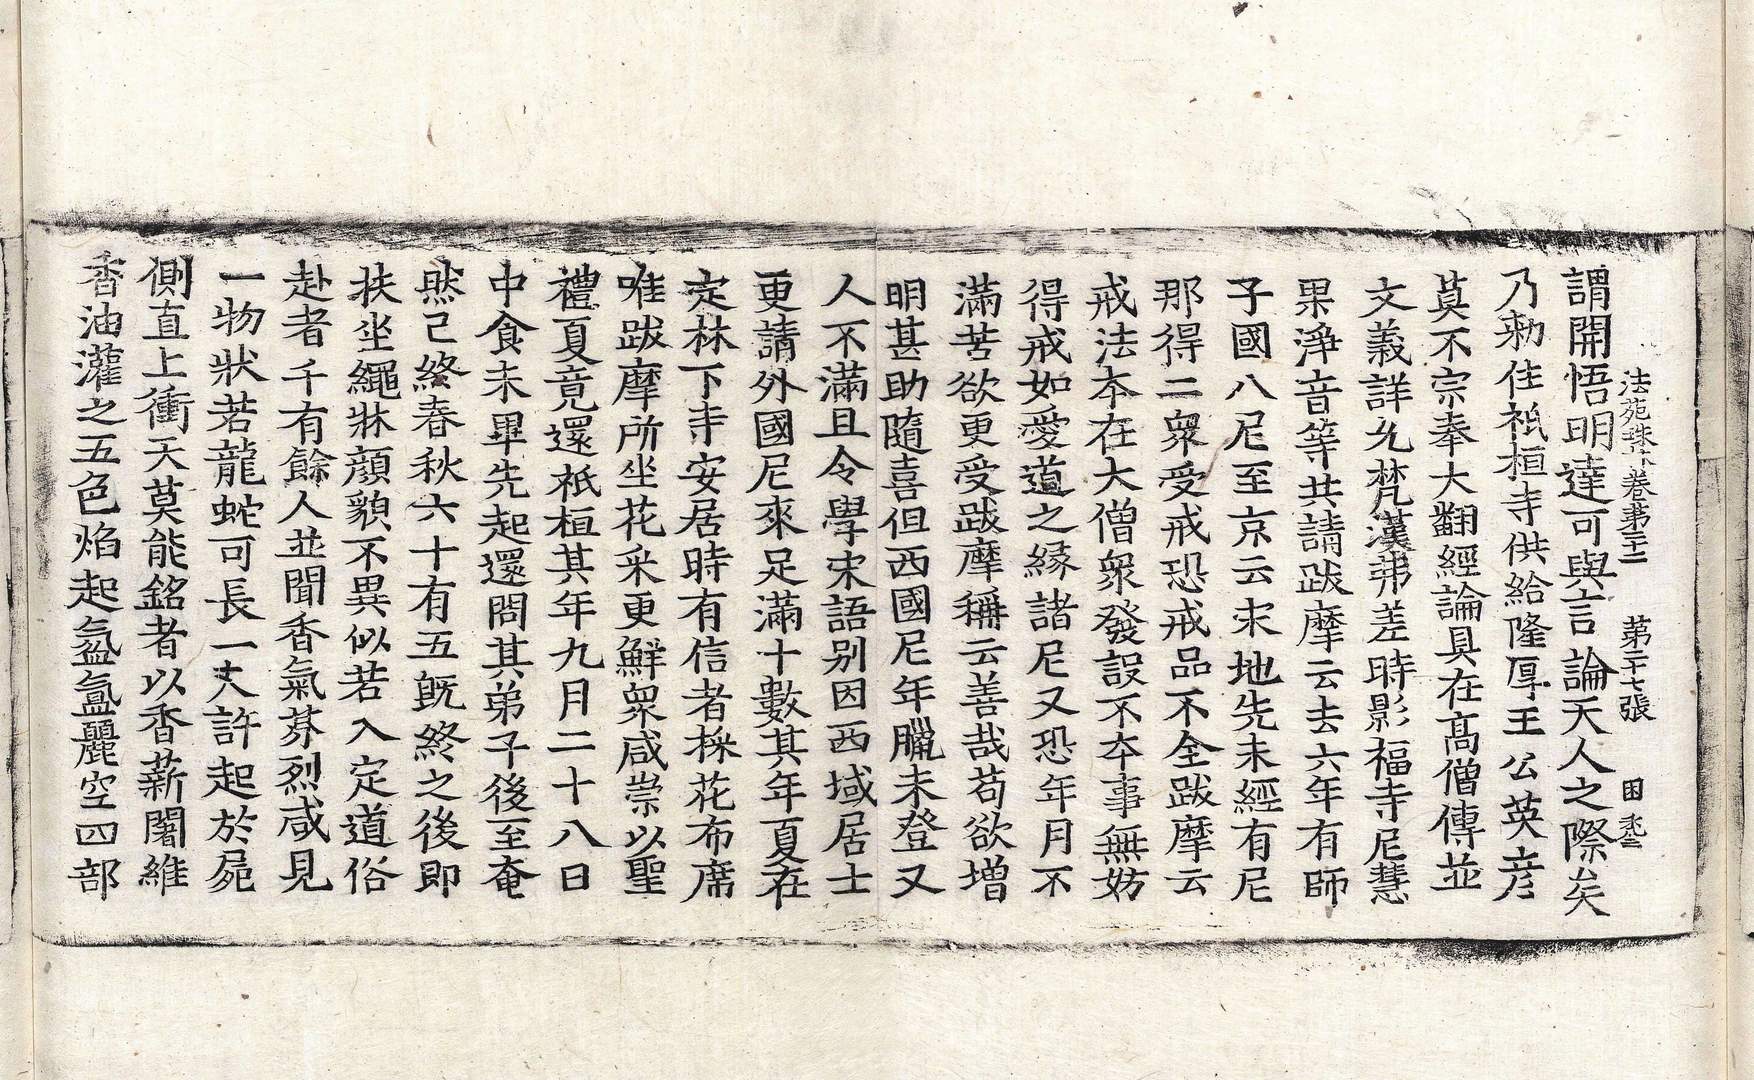 法苑珠林卷第二十二　第二十七張　困
謂開悟明達可與言論天人之際矣
乃勑住祇桓寺供給隆厚王公英彦
莫不宗奉大翻經論具在髙僧傳並
文義詳允梵漢弗差時影福寺尼慧
果淨音等共請跋摩云去六年有師
子國八尼至京云宋地先未經有尼
那得二衆受戒恐戒品不全跋摩云
戒法本在大僧衆發設不本事無妨
得戒如愛道之縁諸尼又恐年月不
滿苦欲更受跋摩稱云善哉苟欲增
明甚助隨喜但西國尼年臘未登又
人不滿且令學宋語别因西域居士
更請外國尼來足滿十數其年夏在
定林下寺安居時有信者採花布席
唯跋摩所坐花采更鮮衆咸崇以聖
禮夏竟還祇桓其年九月二十八日
中食未畢先起還閤其弟子後至奄
然已終春秋六十有五既終之後即
扶坐繩牀顔貌不異似若入定道俗
赴者千有餘人並聞香氣芬烈咸見
一物狀若龍蛇可長一丈許起於屍
側直上衝天莫能銘者以香薪闍維
香油灌之五色焰起氳氳麗空四部